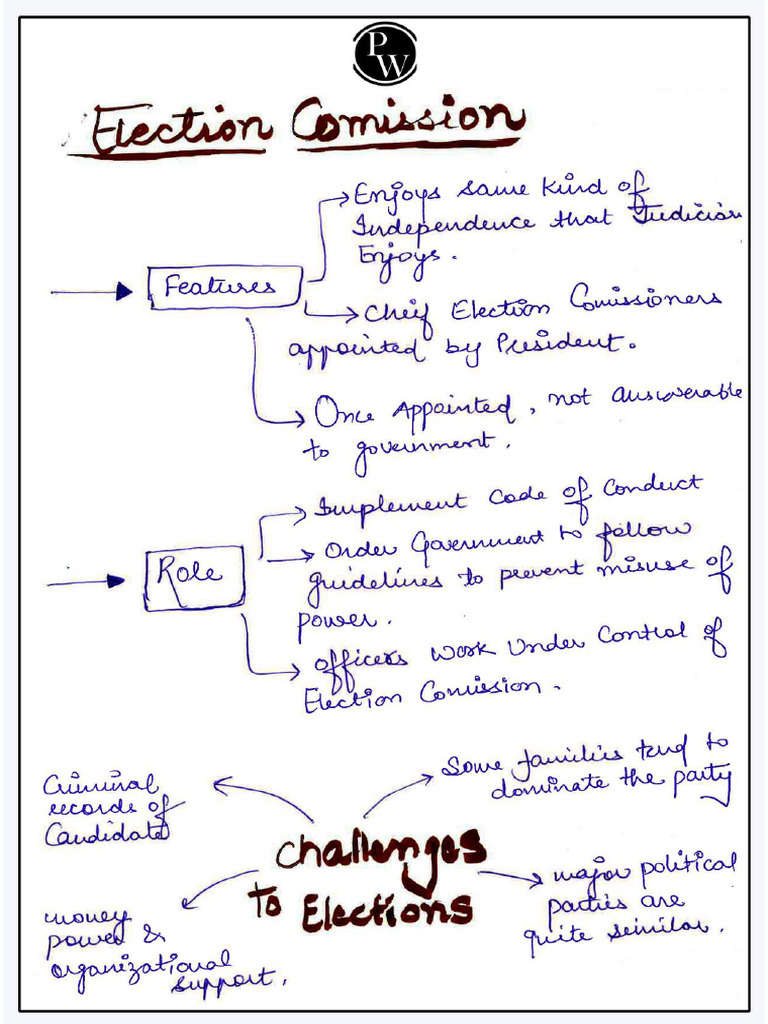 PW
Election Comission
Enjoys same kind of
Independence that Judiciary
Enjoys.
Features
Cheif Election Comissioners
appointed by President.
Once Appointed, not answerable
to government.
Implement Code of Conduct
Order Government to follow
guidelines to prevent misuse of
power.
Role
Officers work under control of
Election Comission.
Some families tend to
dominate the party
Criminal
records of
Candidate
Challenges
to Elections
major political
parties are
quite similar.
money
power &
organizational
support.